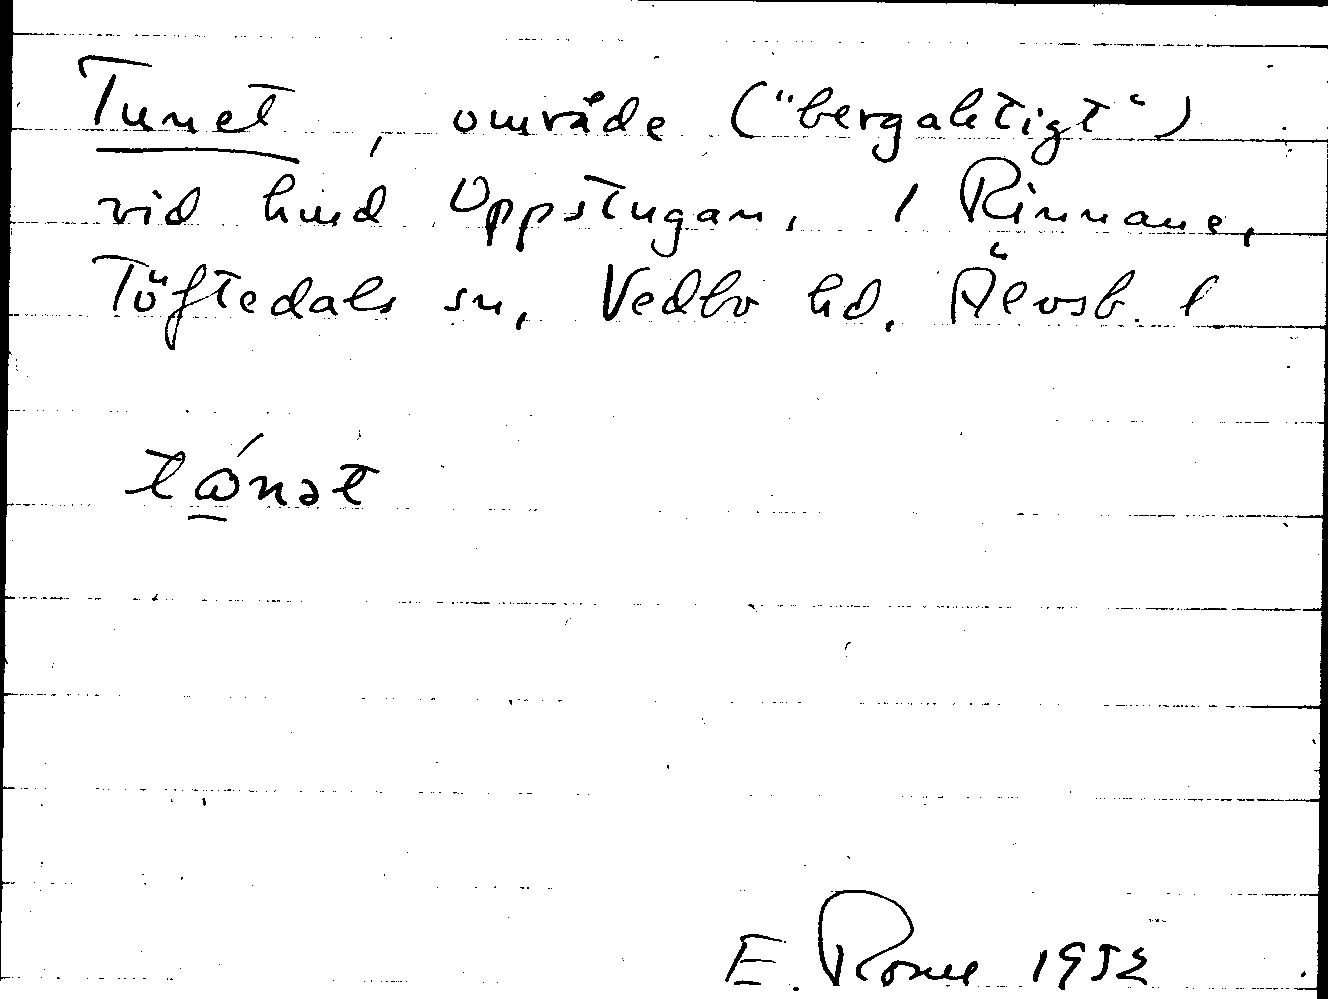 Tunet, område ("bergaktigt")
vid hmd Uppstugan, 1 Rinnane,
Töftedals sn, Vedbo hd. Älvsb. l
tώ̲nət
E. Rome 1952